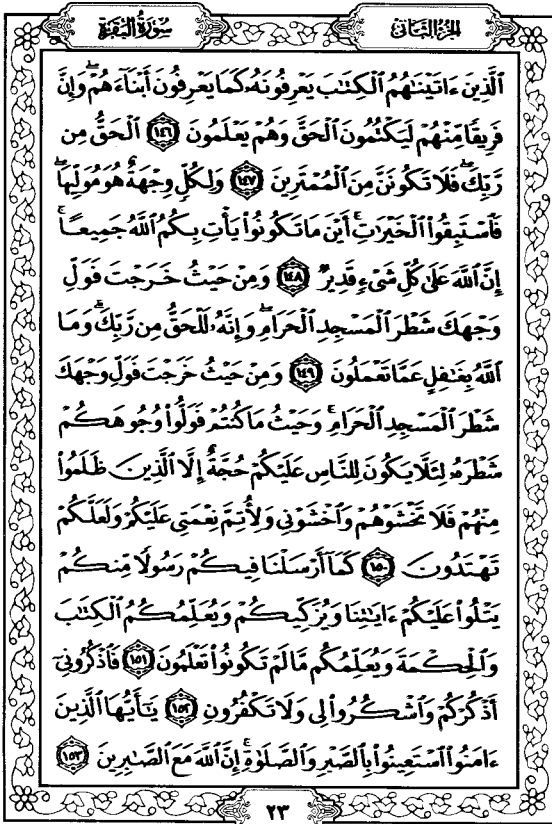 سُورَةُ الْبَقَرَةِ
الجزء الثاني
ٱلَّذِينَ ءَاتَيۡنَٰهُمُ ٱلۡكِتَٰبَ يَعۡرِفُونَهُۥ كَمَا يَعۡرِفُونَ أَبۡنَآءَهُمۡۖ وَإِنَّ
فَرِيقٗا مِّنۡهُمۡ لَيَكۡتُمُونَ ٱلۡحَقَّ وَهُمۡ يَعۡلَمُونَ ١٤٦ ٱلۡحَقُّ مِن
رَّبِّكَ فَلَا تَكُونَنَّ مِنَ ٱلۡمُمۡتَرِينَ ١٤٧ وَلِكُلّٖ وِجۡهَةٌ هُوَ مُوَلِّيهَاۖ
فَٱسۡتَبِقُواْ ٱلۡخَيۡرَٰتِۚ أَيۡنَ مَا تَكُونُواْ يَأۡتِ بِكُمُ ٱللَّهُ جَمِيعًاۚ
إِنَّ ٱللَّهَ عَلَىٰ كُلِّ شَيۡءٖ قَدِيرٞ ١٤٨ وَمِنۡ حَيۡثُ خَرَجۡتَ فَوَلِّ
وَجۡهَكَ شَطۡرَ ٱلۡمَسۡجِدِ ٱلۡحَرَامِۖ وَإِنَّهُۥ لَلۡحَقُّ مِن رَّبِّكَۗ وَمَا
ٱللَّهُ بِغَٰفِلٍ عَمَّا تَعۡمَلُونَ ١٤٩ وَمِنۡ حَيۡثُ خَرَجۡتَ فَوَلِّ وَجۡهَكَ
شَطۡرَ ٱلۡمَسۡجِدِ ٱلۡحَرَامِۚ وَحَيۡثُ مَا كُنتُمۡ فَوَلُّواْ وُجُوهَكُمۡ
شَطۡرَهُۥ لِئَلَّا يَكُونَ لِلنَّاسِ عَلَيۡكُمۡ حُجَّةٌ إِلَّا ٱلَّذِينَ ظَلَمُواْ
مِنۡهُمۡ فَلَا تَخۡشَوۡهُمۡ وَٱخۡشَوۡنِي وَلِأُتِمَّ نِعۡمَتِي عَلَيۡكُمۡ وَلَعَلَّكُمۡ
تَهۡتَدُونَ ١٥٠ كَمَآ أَرۡسَلۡنَا فِيكُمۡ رَسُولٗا مِّنكُمۡ
يَتۡلُواْ عَلَيۡكُمۡ ءَايَٰتِنَا وَيُزَكِّيكُمۡ وَيُعَلِّمُكُمُ ٱلۡكِتَٰبَ
وَٱلۡحِكۡمَةَ وَيُعَلِّمُكُم مَّا لَمۡ تَكُونُواْ تَعۡلَمُونَ ١٥١ فَٱذۡكُرُونِيٓ
أَذۡكُرۡكُمۡ وَٱشۡكُرُواْ لِي وَلَا تَكۡفُرُونِ ١٥٢ يَٰٓأَيُّهَا ٱلَّذِينَ
ءَامَنُواْ ٱسۡتَعِينُواْ بِٱلصَّبۡرِ وَٱلصَّلَوٰةِۚ إِنَّ ٱللَّهَ مَعَ ٱلصَّٰبِرِينَ ١٥٣
٢٣